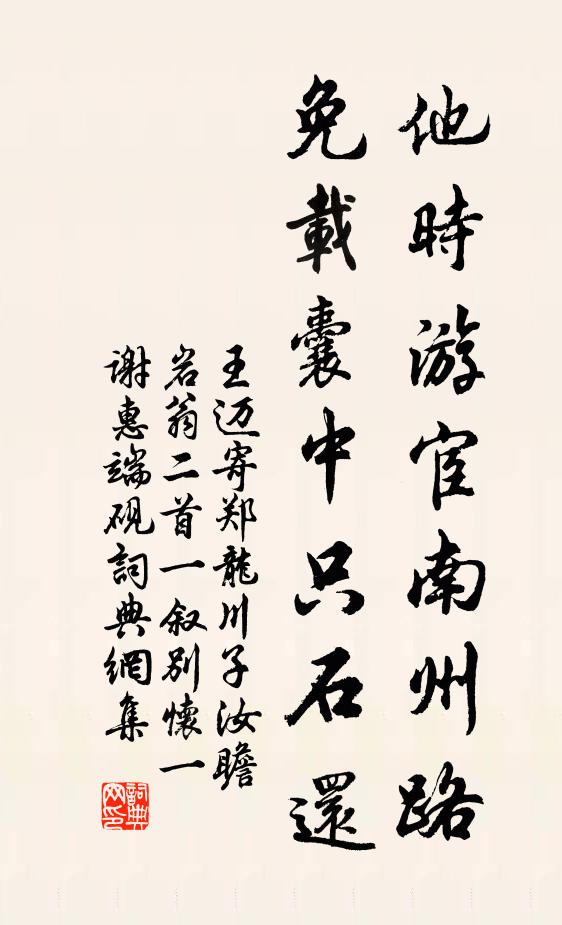 他時游宦南州路
免載囊中只石還
王迈寄郑龍川子汝瞻
岩翁二首一叙别懷一
谢惠端砚詞典網集
詞典
网印